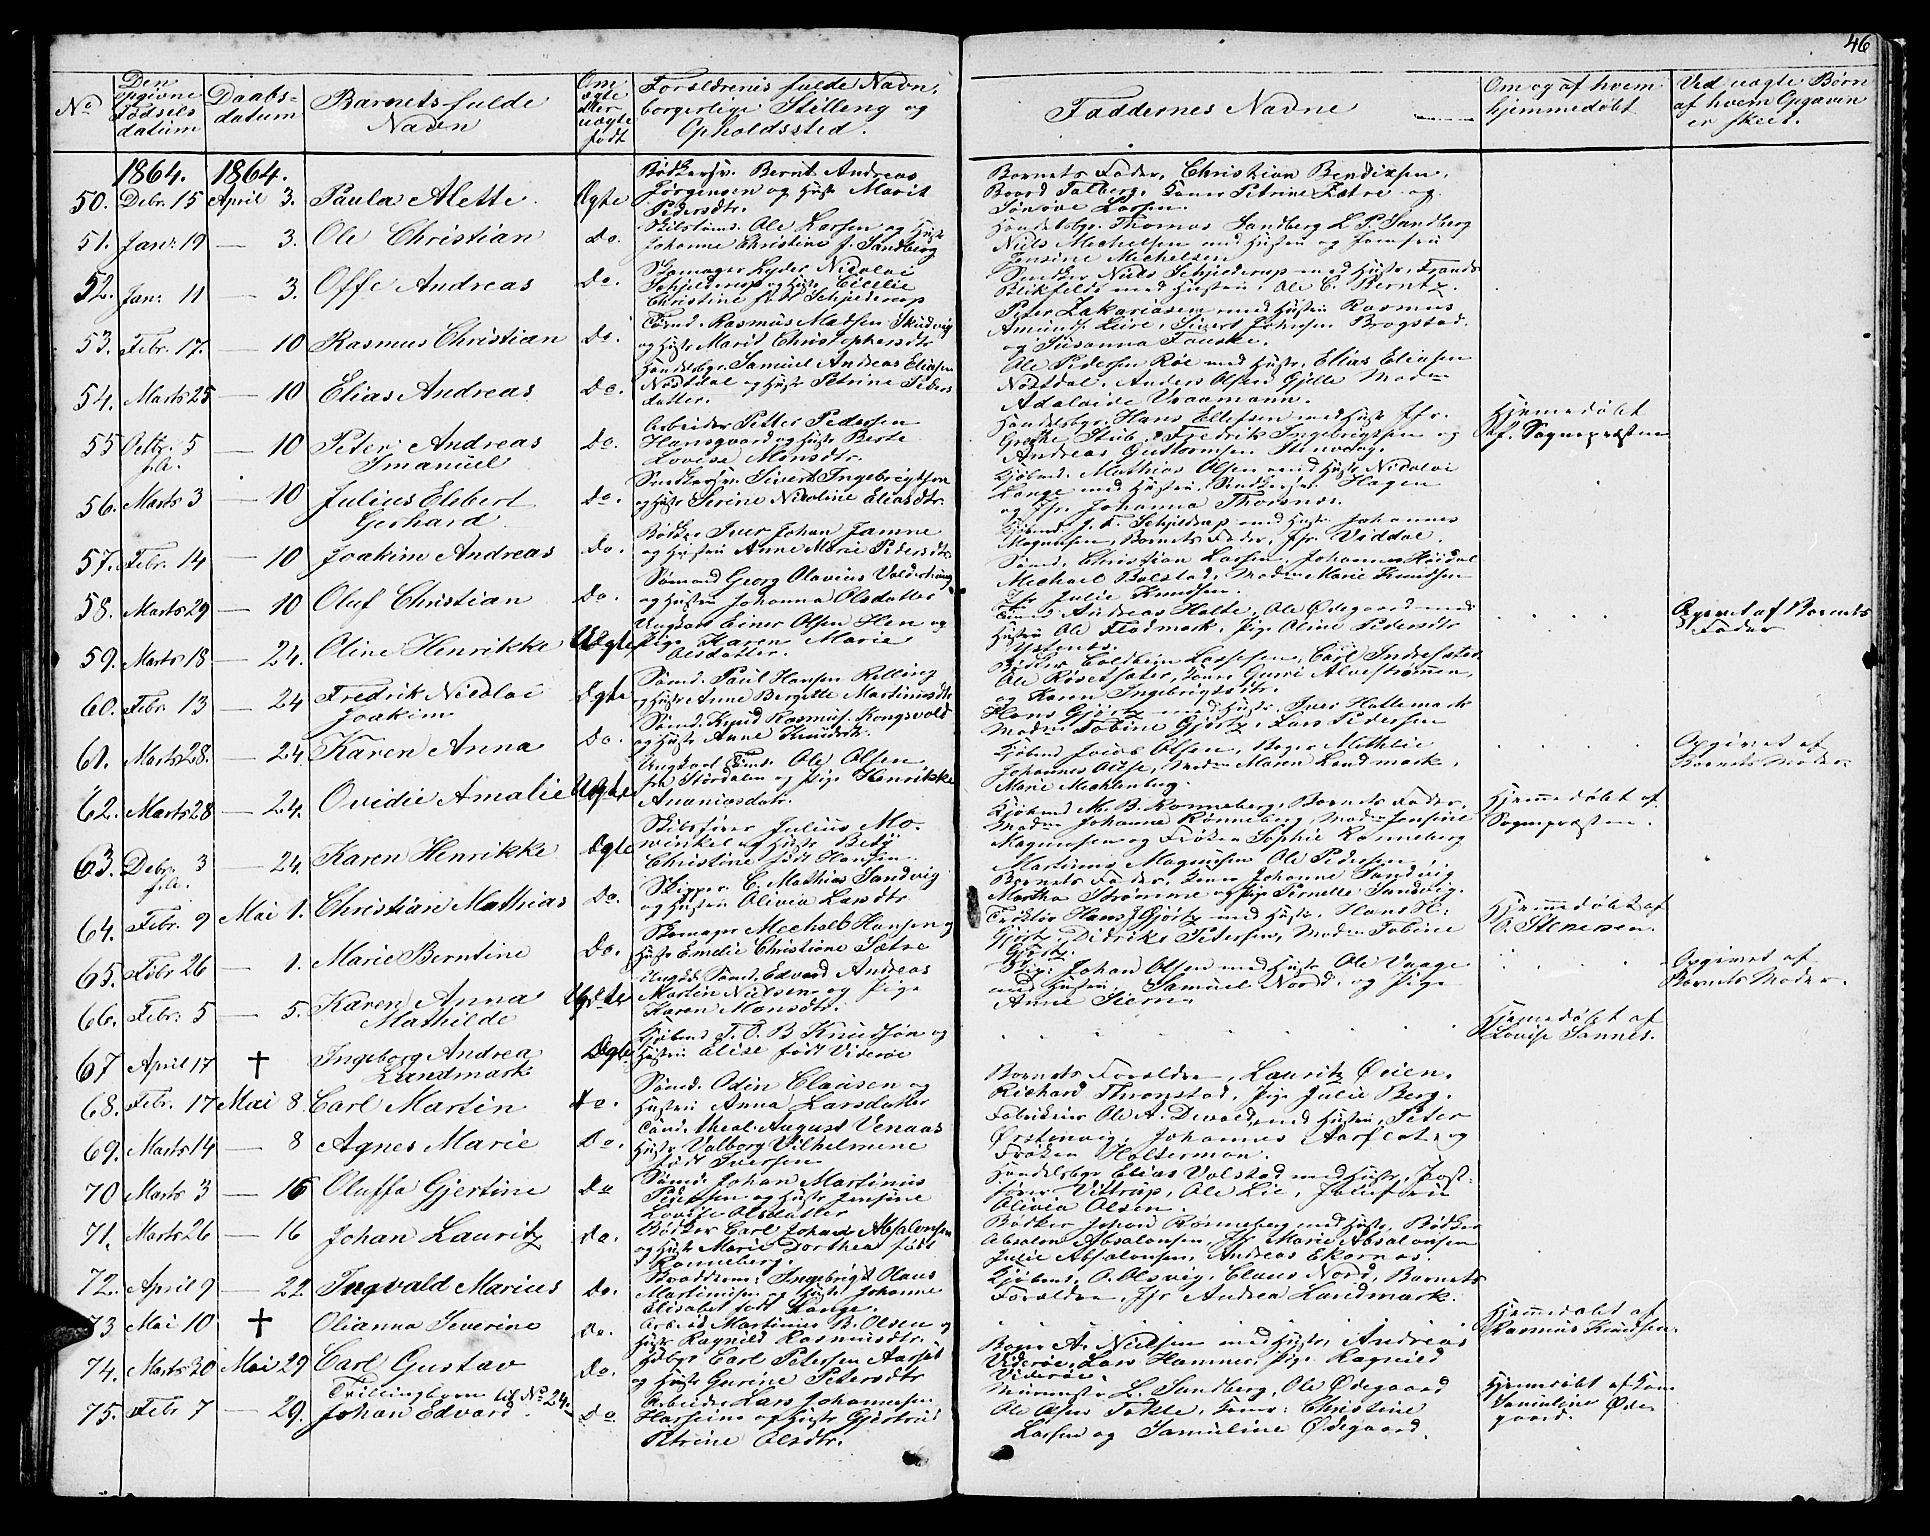 46
No
Den opgivne Fødselsdatum
Daabsdatum
Barnets fulde Navn
Om ægte eller uægte født
Forældrenes fulde Navn, borgerlige Stilling og Opholdssted.
Faddernes Navne
Om og af hvem hjemmedøbt
Ved uægte Børn af hvem Opgaven er skeet.
1864. 1864.
50. Debr. 15 April 3. Paula Alette Ægte
Bødkersv. Bernt Andreas
Jørgensen og Hustr Marit
Pedersdtr.
Barnets Fader, Christian Bendixsen,
Baard Talberg, Koner Petrine Sætre og
Lassen.
51. Janr 19 — 3. Ole Christian Do.
Ole Larsen og Hust
Johanne Christine f. Sandberg
Handelsbgr. Thomas Sandberg L. P. Sandberg
Niels Michelsen med Hustru og Jomfru
Jensine Michelsen
52. Janr 11 — 3. Offe Andreas Do.
Skomager Lyder Nicolai
Schjelderup og Hustr Cecilie
Christine født Schjelderup
Snedker Niels Schjelderup med Hustr, Frands
Blikfeldt med Hustru, Ole C. Berntz.
53. Febr. 17. — 10 Rasmus Christian Do.
Tømd. Rasmus Madsen
og Hustr Marit Christophersdtr
Peter Zakariasen med Hustru Rasmus
Amunds. Lüre, Sivert Johnsen Brogstad.
og Susanna Fauske.
54. Marts 25 — 10 Elias Andreas Do.
Handelsbgr. Samuel Andreas Eliasen
Nordtdal og Hustr Petrine Peders
datter.
Ole Pedersen Røe med Hustr, Elias Eliasen
Nordtdal, Anders Olsen Gjelle Madm
Adelaide Vraamann.
55 Octbr. 5 — 10 Peter Andreas Imanuel Do.
Arbeider Petter Pedersen
Hansgaard og Hustr Berte
Lovise Monsdtr.
Handelsbgr. Hans Ellefsen med Hustr Jfr.
Grethe Stub, Fredrik Ingebrigtsen og
Andreas Guttormsen Stenvaag.
Hjemmedøbt
af Sognepræsten
56. Marts 3 — 10 Julius Elsbert Gerhard Do.
Snedkersv. Sivert Ingebregtsen
og Hustr Serine Nicoline Eliasdtr.
Kjøbmd. Mathias Olsen med Hustr Nicolai
Lange med Hustru, Snedkersv. Hagen
og Jfr. Johanna Thorsnes.
57. Febr. 14 — 10 Joakim Andreas Do.
Bødker Iver Johan Jamne
og Hustru Anne Marie Pedersdtr.
Kjøbmd. J. F. Schjeldrup med Hustr Johannes
Magnussen, Barnets Fader, Jfr. Viddal.
58. Marts 29 — 10 Oluf Christian Do.
Sømand Georg Olavius
og Hustru Johanna Olsdatter
Sømd. Christian Larsen, Johannes Høidal
Michael Bolstad, Madm Marie Knudsen
Jfr Julie Knudsen.
59. Marts 18 — 24. Oline Henrikke Uægte
Ungkarl Einer Olsen Hen og
Pige Karen Marie
Olsdatter.
Andreas Holte, Ole Ødegaard med
Hustru Ole Flødmark, Pige Oline Pedersdtr
Opgivet af Barnets
Fader
60. Febr. 13 — 24 Fredrik Nicolai Joakim Ægte
Sømd. Paul Hansen Relling
og Hustr Anne Bergette Martinusdtr
Bødker Coldbein Lassesen, Carl Indresæter
Ole Røsetsæter, Kone Guri Alvestrømmen,
og Karen Ingebrigtsdtr.
61. Marts 28. — 24 Karen Anna Do.
Sømd. Knud Rasmus. Kongsvold
og Hustr Anne Knudsdtr.
Hans Gjørtz med Hustr. Iver Hattemark
Madm Tobine Gjørtz, Lars Pedersen
62. Marts 28 — 24. Ovidie Amalie Uægte
Ungkarl Tømd. Ole Olsen,
fra Stordalen og Pige Henrikke
Ananiasdatr.
Kjøbmd Jacob Olsen, Bager Methlie
Johannes Aalse, Madm Maren Landmark,
Marie Mecklenberg.
Opgivet af
Barnets Moder
63. Debr. 3 — 24. Karen Henrikke Ægte
Skibsfører Julius Mo-
winkel og Hustr Betzy
Christine født Hansen
Kjøbmd M. B. Rønneberg, Barnets Fader,
Madm Johanne Rønneberg, Madm Jensine
Magnussen og Frøken Sophie Rønneberg
Hjemmedøbt af
Sognepræsten.
64. Febr. 9 Mai 1. Christian Mathias Do.
Skipper C. Mathias Sandvig
og Hustru Olivia Larsdtr
Martinus Magnusen Ole Pedersen
Barnets Fader, Kone Johanne Sandvig
Martha Strømme og Pige Pernelle Sandvig.
65. Febr 26 — 1. Marie Berntine Do.
Skomager Mechale Hansen og
Hustr Emelie Christiane Sætre
Traktør Hans J Gjørtz med Hustr, Hans H.
Gjørtz, Didrike Petersen, Madm Tobine
Gjørtz.
Hjemmedøbt af
O. Stenersen.
66. Febr. 5 — 5. Karen Anna Mathilde Uægte
Ungkl. Sømd. Edvard Andreas
Martin Nielsen og Pige
Karen Monsdtr.
Johan Olsen med Hustr Ole Vaage
med Hustru, Samuel Nord, og Pige
Anne Siem
Opgivet af
Barnets Moder.
67 April 17 † Ingeborg Andrea Landmark Ægte
Kjøbmd T. O. B Knudsøn og
Hustru Elise født Viderøe
Hjemmedøbt af
Lovise Sannes.
68. Febr. 17 Mai 8. Carl Martin Do.
Sømd. Odin Clausen og
Hustru Anna Larsdatter
Barnets Forældre, Lauritz Øien,
Richard Thronstad, Pige Julie Berg.
69. Marts 14 — 8 Agnes Marie Do.
Cand. theol. August Venaas
Hustr Valborg Vilhelmine
født Iversen
Fabrikeier Ole A. Devold, med Hustru, Peter
Ørstenvig, Johannes Aarflot og
Frøken Holterman.
70 Marts 3 — 16 Oluffa Gjertine Do
Sømd. Johan Martinus
Pedersen og Hustr Jensine
Lovise Olsdatter
Handelsbgr Elias Valstad med Hustr, Post-
fører Vittrup, Ole Lie, Jomfru
Olivia Olsen.
71. Marts 26 — 16 Johan Lauritz Do.
Bødker Carl Johan Absalonsen
og Hustr Marie Dorthea født
Rønneberg.
Bødker Johan Rønneberg med Hustr, Bødker
Absalon Absalonsen, Jfr Marie Absalonsen
Julie Absalonsen, Andreas Ekornes.
72. April 9 — 22 Ingvald Marius Do.
Ingebrigt Olaus
Martinussen og Hustr Johanne
Elisabet født Lange.
Kjøbmd. O. Olsvig, Claus Nord, Barnets
Forældre, Jfr Andrea Landmark.
73 Mai 10 † Olianna Severine Do.
Arbeid Martinus B. Olsen og
Hustr Ragnild Rasmusdtr.
Hjemmedøbt af
Rasmus Knudsen.
74. Marts 30 Mai 29 Carl Gustav Do.
Hdbgr Carl Petersen Aarset
og Hustr Gurine Petersdtr
Bager A. Nielsen med Hustr, Andreas
Viderøe, Lars Hammer, Pige Ragnild
Viderøe.
75. Febr 7 — 29. Trillingbarn til No 24.
Johan Edvard Do
Arbeider Lars Johannesen
Harseim og Hustr Gjertrud
Petrine Olsdtr.
Murmester L. Sandberg, Ole Ødegaard
Ole Olsen Takle, Koner Christine
Larsen og Samuline Ødegaard.
Hjemmedøbt af Kone
Samuline Øde-
gaard.